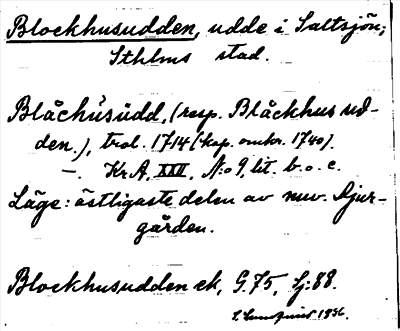 Blockhusudden, udde i Saltsjön;
Sthlms stad.
Blåchúsúdd, (resp. Blåckhus ud-
den.), trol. 1714 (kop. omkr. 1740).
–. Kr A, XXII, N:o 9, lit. b. o. c.
Läge: östligaste delen av nuv. Djur-
gården.
Blockhusudden ek, G. 75, Sj: 88.
1936.